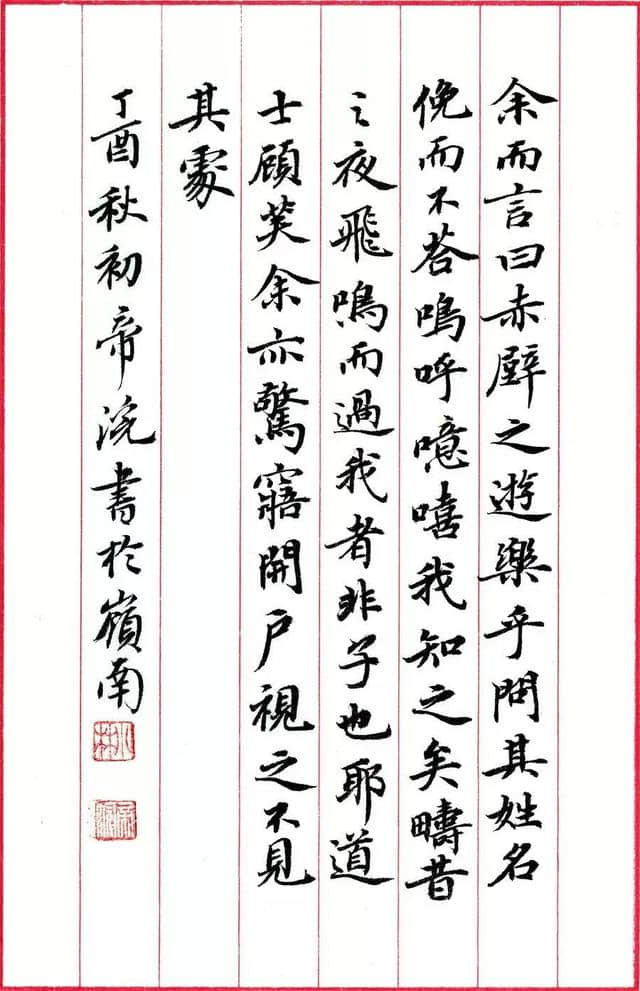 余而言曰赤壁之遊樂乎問其姓名
俛而不荅嗚呼噫嘻我知之矣疇昔
之夜飛鳴而過我者非子也耶道
士顧笑余亦驚寤開户視之不見
其處
丁酉秋初帝浣書於嶺南